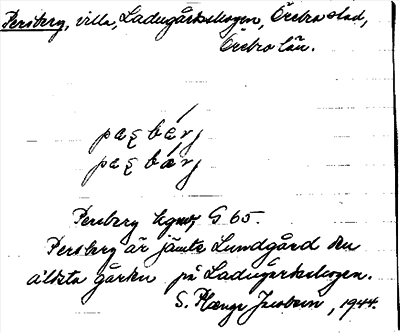 Persberg, villa, Ladugårdsskogen, Örebro stad,
Örebro län.
Persberg G. 65.
Persberg är jämte Lundgård den
äldsta gården på Ladugårdsskogen.
S. Jacobson, 1944.